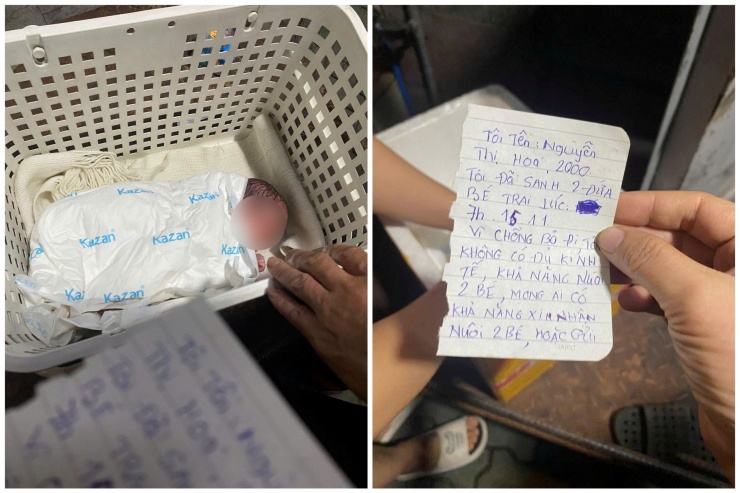 Kazan
Kazan
Kazan
Kazan
Kazan
Kazan
TÔI TÊN
THỊ HOA
TÔI ĐÃ SAN
BÉ TRA
TÔI TÊN: NGUYỄN
THỊ HOA, 2000
TÔI ĐÃ SANH 2 ĐỨA
BÉ TRAI LÚC:
7h. 15 11
VÌ CHỒNG BỎ ĐI TÔI
KHÔNG CÓ ĐỦ KINH
TẾ, KHẢ NĂNG NUÔI
2 BÉ, MONG AI CÓ
KHẢ NĂNG XIN NHẬN
NUÔI 2 BÉ, HOẶC GỬI